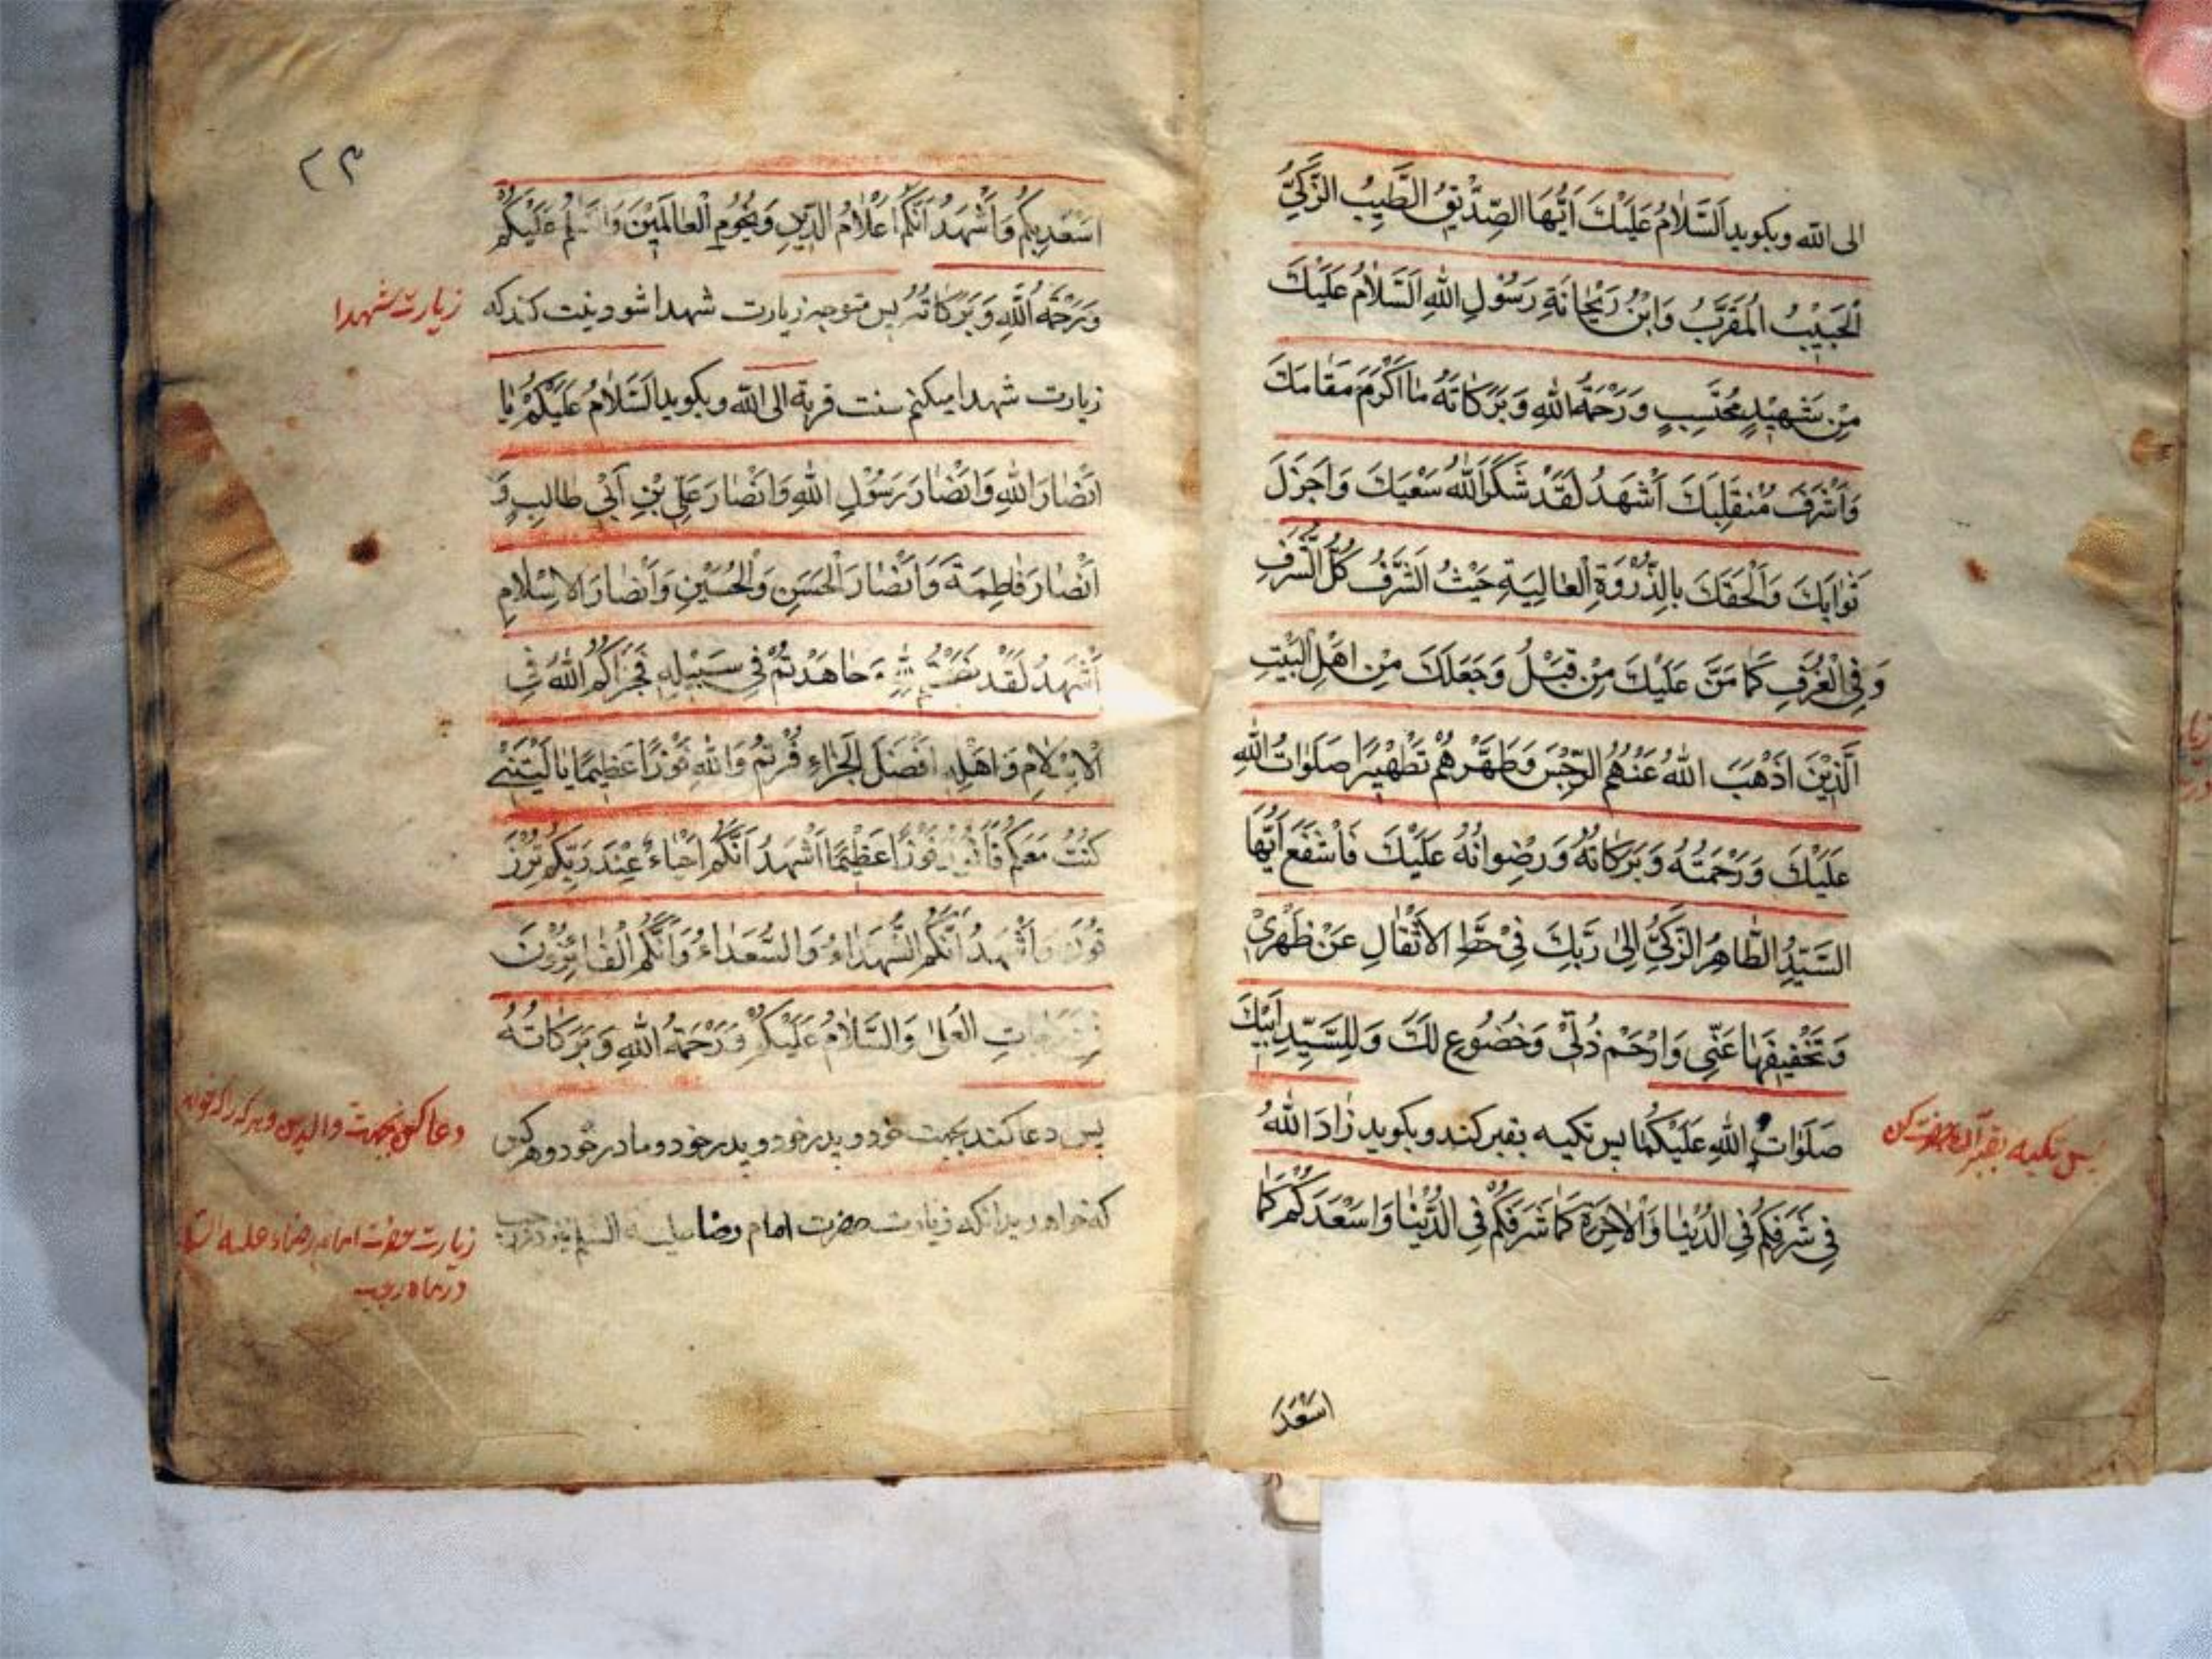 الی الله و بکوید اَلسَّلامُ عَلَیْكَ اَیُّهَا الصِّدّیقُ الطَّیِّبُ الزَّکِیُّ
الْحَبیْبُ الْمُقَرَّبُ وَابْنُ رَیْحانَةِ رَسُوْلِ اللهِ اَلسَّلامُ عَلَیْكَ
مِنْ شَهیْدٍ مُحْتَسِبٍ وَرَحْمَةُ اللهِ وَبَرَکاتُهُ ما اَکْرَمَ مَقامَكَ
وَاَشْرَفَ مُنْقَلَبَكَ اَشْهَدُ لَقَدْ شَکَرَ اللهُ سَعْیَكَ وَاَجْزَلَ
ثَوابَكَ وَاَلْحَقَكَ بِالذِّرْوَةِ الْعالِیَةِ حَیْثُ الشَّرَفُ کُلُّ الشَّرَفِ
وَفِی الْغُرَفِ کَما مَنَّ عَلَیْكَ مِنْ قَبْلُ وَجَعَلَكَ مِنْ اَهْلِ الْبَیْتِ
الَّذیْنَ اَذْهَبَ اللهُ عَنْهُمُ الرِّجْسَ وَطَهَّرَهُمْ تَطْهیْرًا صَلَواتُ اللهِ
عَلَیْكَ وَرَحْمَتُهُ وَبَرَکاتُهُ وَرِضْوانُهُ عَلَیْكَ فَاشْفَعْ اَیُّهَا
السَّیِّدُ الطّاهِرُ الزَّکِیُّ اِلی رَبِّكَ فِیْ حَطِّ الْاَثْقالِ عَنْ ظَهْرِیْ
وَتَخْفیْفِها عَنّی وَارْحَمْ ذُلّی وَخُضُوع لَكَ وَلِلسَّیِّدِ اَبیْكَ
صَلَواتُ اللهِ عَلَیْکُما پس تکیه بقبر کند و بکوید زادَ اللهُ
پس تکیه بقبر کن
فی شَرَفِکُمْ فِی الدُّنْیا وَالْاخِرَةِ کَما شَرَّفَکُمْ فِی الدُّنْیا وَاَسْعَدَکُمْ کَما
اَسْعَدَ
۲۳
اَسْعَدَ بِکُمْ وَاَشْهَدُ اَنَّکُمْ اَعْلامُ الدّیْنِ وَنُجُوْمُ الْعالَمیْنَ وَالسَّلامُ عَلَیْکُمْ
وَرَحْمَةُ اللهِ وَبَرَکاتُهُ پس متوجه زیارت شهدا شود و نیت کند که
زیارت شهدا
زیارت شهدا میکنم سنت قربة الی الله و بکوید اَلسَّلامُ عَلَیْکُمْ یا
اَنْصارَ اللهِ وَاَنْصارَ رَسُوْلِ اللهِ وَاَنْصارَ عَلِیِّ بْنِ اَبیْ طالِبٍ وَ
اَنْصارَ فاطِمَةَ وَاَنْصارَ الْحَسَنِ وَالْحُسَیْنِ وَاَنْصارَ الْاِسْلامِ
اَشْهَدُ لَقَدْ نَصَحْتُمْ لِلّهِ وَجاهَدْتُمْ فی سَبیْلِهِ فَجَزاکُمُ اللهُ فِی
الْاِسْلامِ وَاَهْلِهِ اَفْضَلَ الْجَزاءِ فُزْتُمْ وَاللهِ فَوْزًا عَظیمًا یا لَیْتَنی
کُنْتُ مَعَکُمْ فَاَفُوْزَ فَوْزًا عَظیْمًا اَشْهَدُ اَنَّکُمْ اَحْیاءٌ عِنْدَ رَبِّکُمْ تُرْزَ
قُوْنَ وَاَشْهَدُ اَنَّکُمُ الشُّهَداءُ وَالسُّعَداءُ وَاَنَّکُمُ الْفائِزُوْنَ
فی دَرَجاتِ الْعُلی وَالسَّلامُ عَلَیْکُمْ وَرَحْمَةُ اللهِ وَبَرَکاتُهُ
پس دعا کند بجهت خود و پدر خود و پدر خود و مادر خود و هر کس
دعا کن بجهت والدین و هر که را که خواهد
که خواهد و بدانکه زیارت حضرت امام رضا علیه السلم
زیارت حضرت امام رضا علیه السلام
در ماه رجب